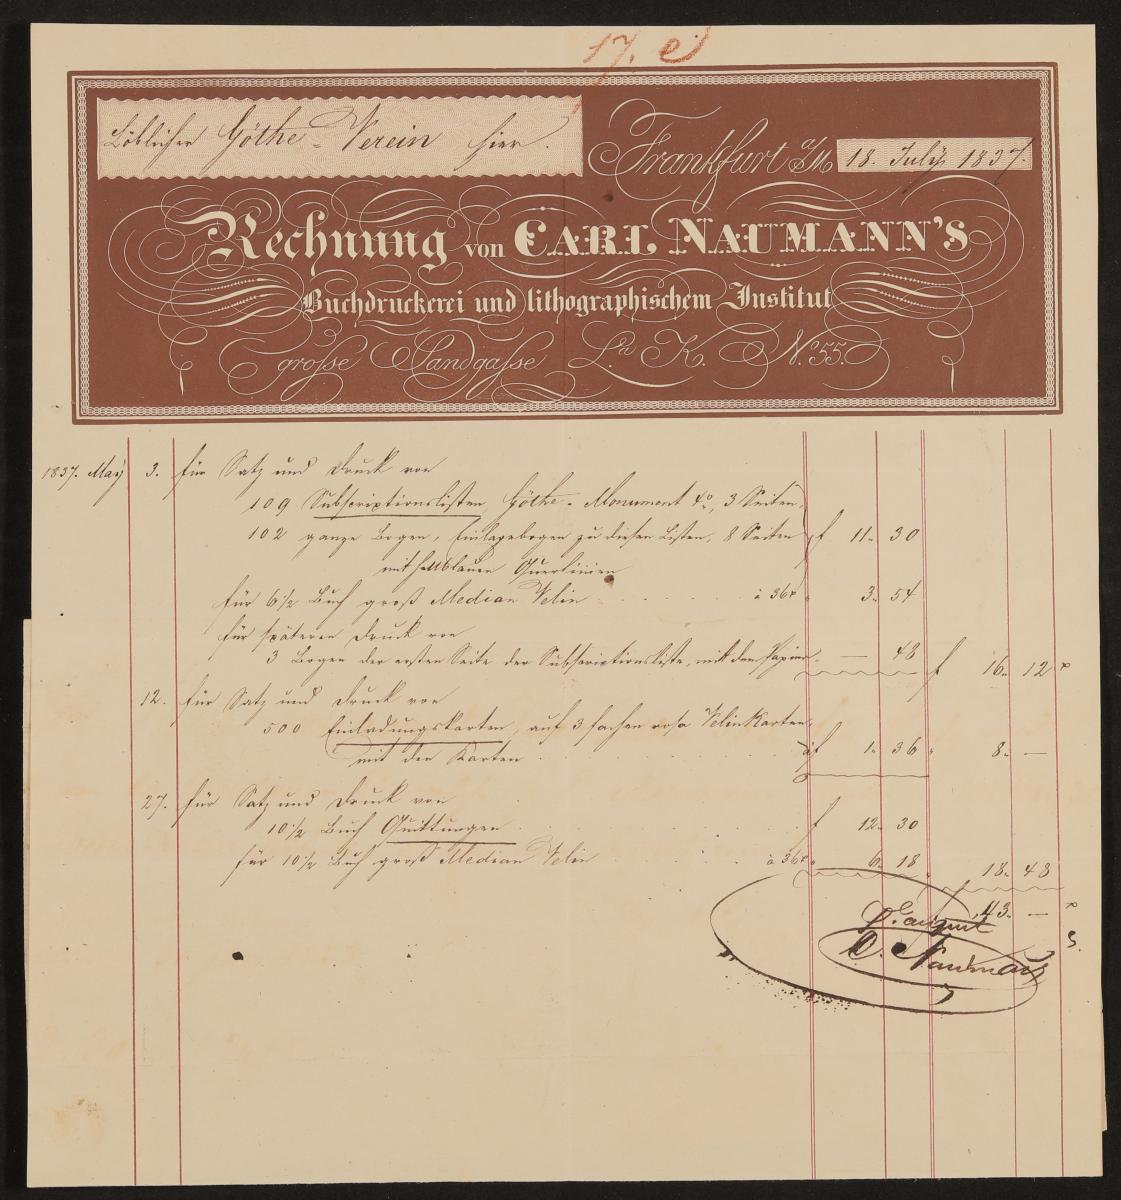 17. e
Löblicher Göthe-Verein hier.
Frankfurt a/M 18. July 1837.
Rechnung von CARL NAUMANN'S
Buchdruckerei und lithographischem Institut
grosse Sandgasse L.ra K. No. 55.
1837. May 3. für Satz und Druck von
109 Subscriptionslisten, Göthe-Monument 4o, 3 Seiten,
102 ganze Bogen, Einlagebogen zu diesen Listen, 8 Seiten f 11. 30
mit hellblauen Querlinien
für 6 1/2 Buch groß Median Velin à 36x " 3. 54
für späteren Druck von
3 Bogen der ersten Seite der Subscriptionsliste, mit dem Papier. — 48 f 16. 12 x
12. für Satz und Druck von
500 Einladungskarten, auf 3fachen rosa Velinkarten,
mit den Karten à f 1. 36 " 8. —
27. für Satz und Druck von
10 1/2 Buch Quittungen f 12. 30
für 10 1/2 Buch groß Median Velin à 36x " 6. 18 " 18. 48
43. — x
C. Naumann